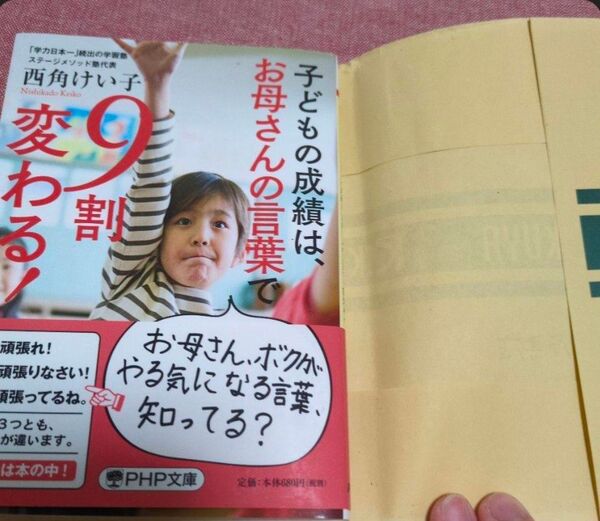 「学力日本一」続出の学習塾
ステージメソッド塾代表
西角けい子
Nishikado Keiko
子どもの成績は、
お母さんの言葉で
9割
変わる!
お母さん、ボクが
やる気になる言葉、
知ってる?
頑張れ!
頑張りなさい!
頑張ってるね。
3つとも、
が違います。
は本の中!
PHP文庫
定価:本体680円(税別)